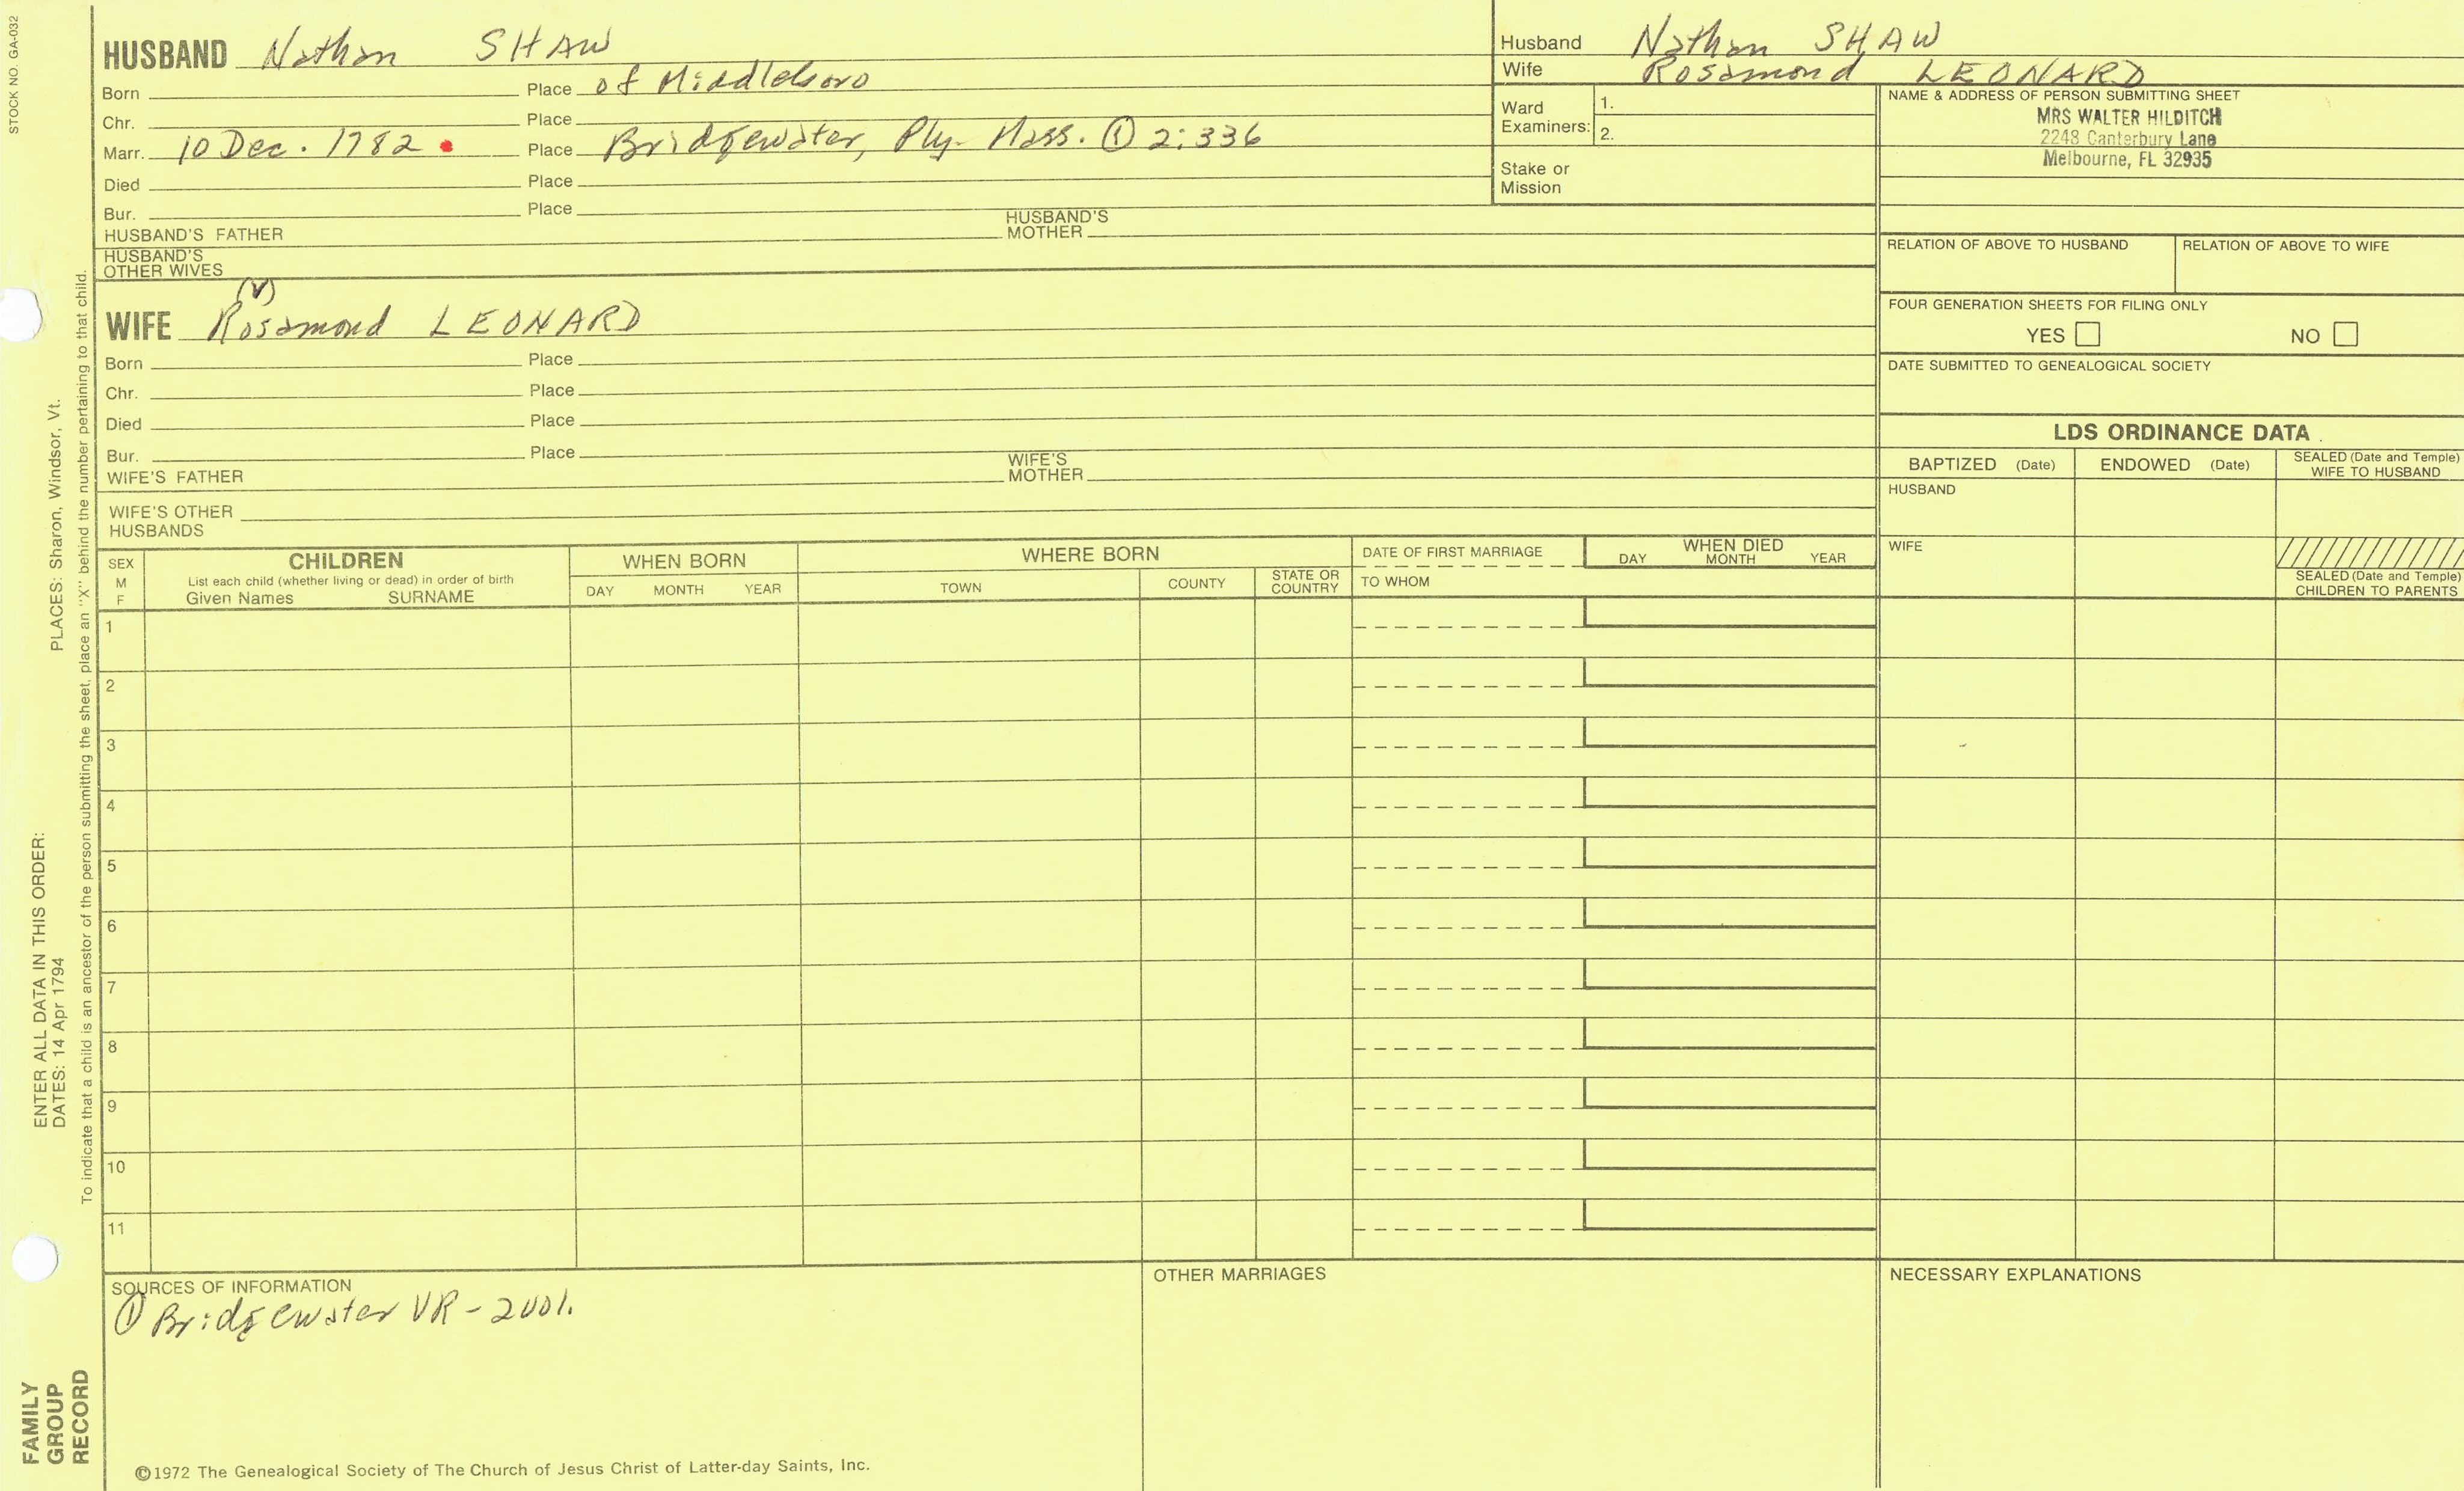 STOCK NO. GA-032
HUSBAND Nathan SHAW
Born Place of Middleboro
Chr. Place
Marr. 10 Dec. 1782 Place Bridgewater, Ply. Mass. ① 2:336
Died Place
Bur. Place
HUSBAND'S FATHER HUSBAND'S MOTHER
HUSBAND'S OTHER WIVES
(V)
WIFE Rosamond LEONARD
Born Place
Chr. Place
Died Place
Bur. Place
WIFE'S FATHER WIFE'S MOTHER
WIFE'S OTHER HUSBANDS
Husband Nathan SHAW
Wife Rosamond LEONARD
Ward Examiners: 1.
2.
Stake or Mission
NAME & ADDRESS OF PERSON SUBMITTING SHEET
MRS WALTER HILDITCH
2248 Canterbury Lane
Melbourne, FL 32935
RELATION OF ABOVE TO HUSBAND RELATION OF ABOVE TO WIFE
FOUR GENERATION SHEETS FOR FILING ONLY
YES NO
DATE SUBMITTED TO GENEALOGICAL SOCIETY
LDS ORDINANCE DATA
BAPTIZED (Date) ENDOWED (Date) SEALED (Date and Temple) WIFE TO HUSBAND
HUSBAND
WIFE
SEALED (Date and Temple) CHILDREN TO PARENTS
SEX M F
CHILDREN
List each child (whether living or dead) in order of birth
Given Names SURNAME
WHEN BORN
DAY MONTH YEAR
WHERE BORN
TOWN COUNTY STATE OR COUNTRY
DATE OF FIRST MARRIAGE
TO WHOM
WHEN DIED
DAY MONTH YEAR
1
2
3
4
5
6
7
8
9
10
11
SOURCES OF INFORMATION
① Bridgewater VR - 2vol.
OTHER MARRIAGES
NECESSARY EXPLANATIONS
©1972 The Genealogical Society of The Church of Jesus Christ of Latter-day Saints, Inc.
FAMILY GROUP RECORD
ENTER ALL DATA IN THIS ORDER:
DATES: 14 Apr 1794 PLACES: Sharon, Windsor, Vt.
To indicate that a child is an ancestor of the person submitting the sheet, place an "X" behind the number pertaining to that child.